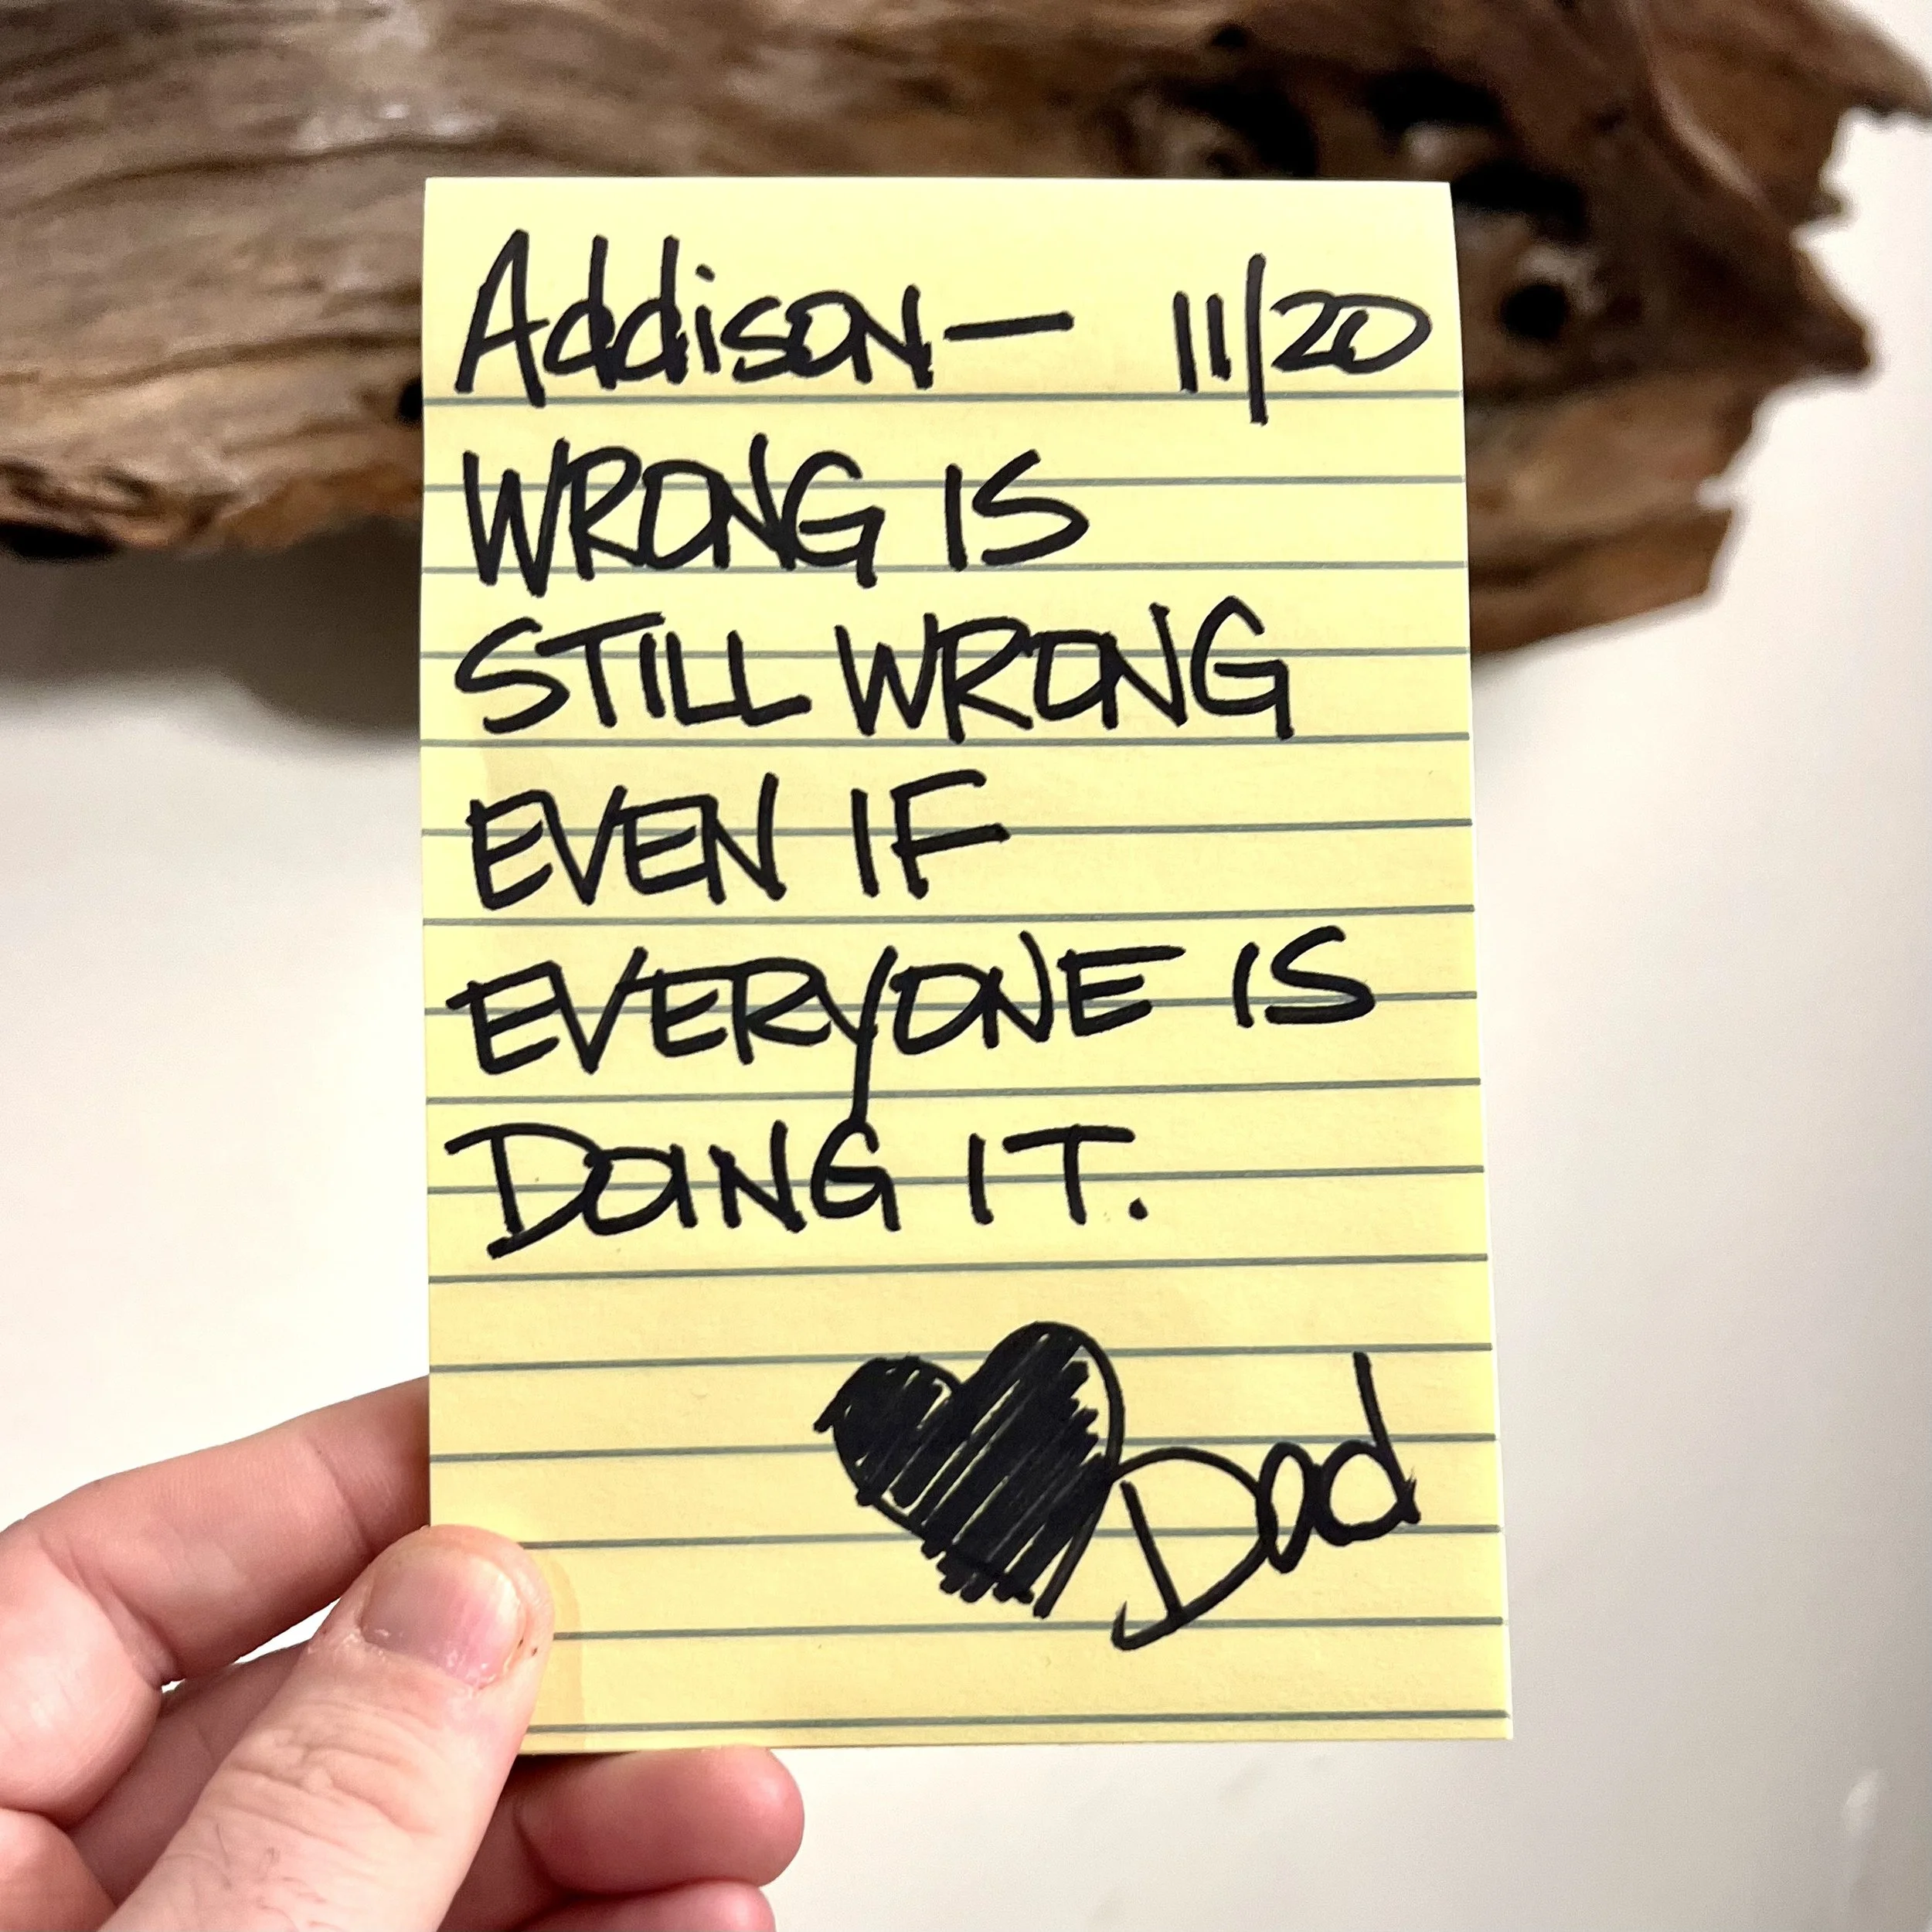 Addison— 11/20
WRONG IS
STILL WRONG
EVEN IF
EVERYONE IS
DOING IT.
Dad